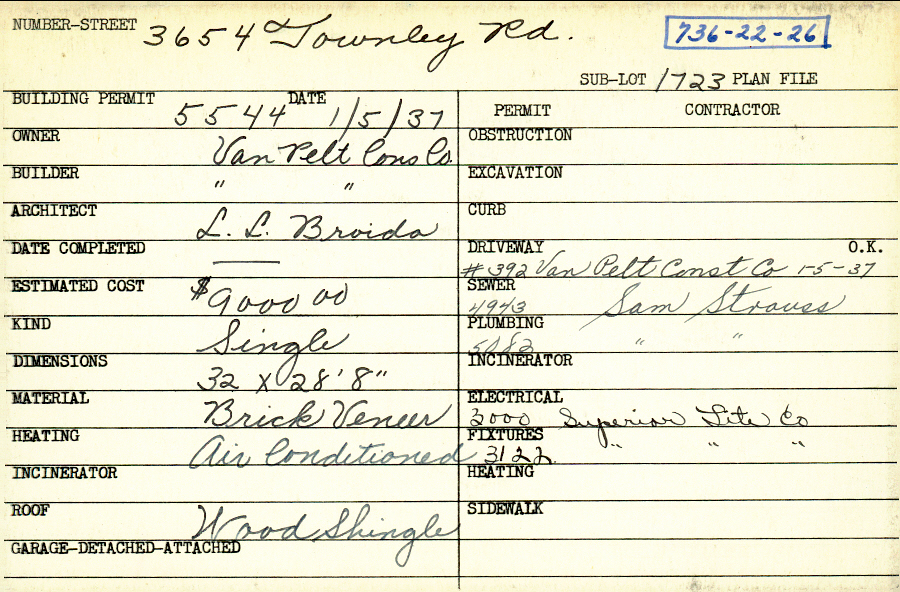 NUMBER-STREET 3654 Townley Rd. 736-22-26
SUB-LOT 1723 PLAN FILE
BUILDING PERMIT 5544 DATE 1/5/37
OWNER Van Pelt Cons Co.
BUILDER " "
ARCHITECT L. L. Broida
DATE COMPLETED —
ESTIMATED COST $9000 00
KIND Single
DIMENSIONS 32 x 28' 8"
MATERIAL Brick Veneer
HEATING Air Conditioned
INCINERATOR
ROOF Wood Shingle
GARAGE-DETACHED-ATTACHED
PERMIT CONTRACTOR
OBSTRUCTION
EXCAVATION
CURB
DRIVEWAY O.K.
#392 Van Pelt Const Co 1-5-37
SEWER
4943 Sam Strauss
PLUMBING
5082 " "
INCINERATOR
ELECTRICAL
3000 Superior Lite Co
FIXTURES
3122 " " "
HEATING
SIDEWALK